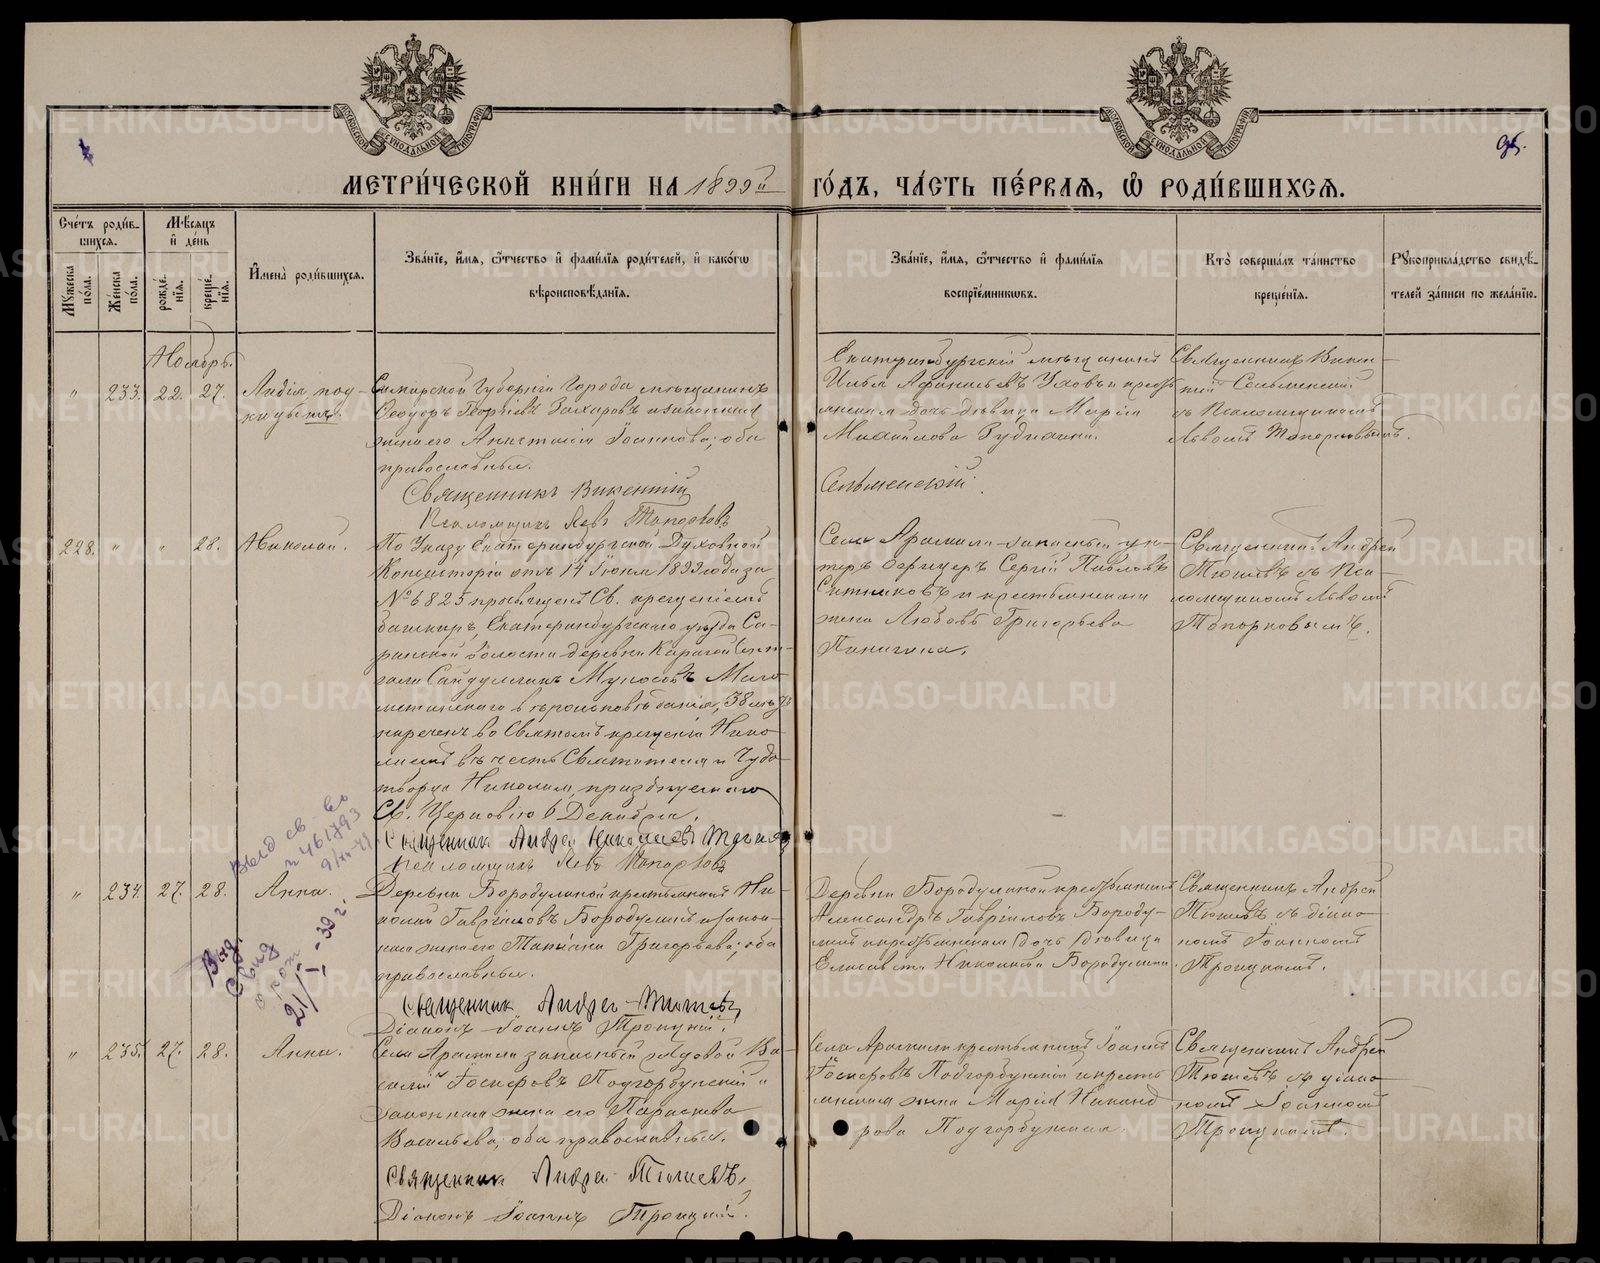 МОСКОВСКОЙ СИНОДАЛЬНОЙ ТИПОГРАФІИ
МОСКОВСКОЙ СИНОДАЛЬНОЙ ТИПОГРАФІИ
МЕТРИ́ЧЕСКОЙ КНИ́ГИ НА 1899й ГО́ДЪ, ЧА́СТЬ ПЕ́РВАЯ, Ѽ РОДИ́ВШИХСЯ.
Сче́тъ роди́вшихся.
Мѣ́сяцъ и҆ де́нь
Мꙋ́жеска по́ла.
Же́нска по́ла.
рожде́нїя.
креще́нїя.
И҆мена̀ роди́вшихся.
Зва́нїе, и҆́мя, ѻ҆́тчество и҆ фами́лїя роди́телей, и҆ како́гѡ
вѣроисповѣ́данїя.
Зва́нїе, и҆́мя, ѻ҆́тчество и҆ фами́лїя
воспрїе́мникѡвъ.
Кто̀ соверша́лъ та́инство
креще́нїя.
Рꙋкоприкла́дство свидѣ́-
телей за́писи по жела́нїю.
Ноябрь.
" 233. 22. 27. Лидія под-
кидышъ.
Самарской Губерніи Города мѣщанинъ
Ѳеодоръ Георгіевъ Захаровъ и законная
жена его Анастасія Іоаннова; оба
православные.
Священникъ Викентій
Псаломщикъ Левъ Топорковъ
Екатеринбургскій мѣщанинъ
Аѳанасьевъ и кресть
янская дочь дѣвица Марія
Михайлова
Сельменскій.
Священникъ Викен-
тій Сельменскій
съ Псаломщикомъ
Львомъ Топорковымъ.
228. " " 28. Николай.
По Указу Екатеринбургской Духовной
Консисторіи отъ 14 Іюня 1899 года за
№ 6825 просвѣщенъ Св. крещеніемъ
башкиръ Екатеринбургскаго уѣзда Са-
ринской волости деревни
Маго-
метанскаго вѣроисповѣданія, 38 лѣтъ
нареченъ во Святомъ крещеніи Нико-
лаемъ въ честь Святителя и Чудо-
творца Николая, празднуемаго
Св. Церковію 6 Декабря.
Священник Андрей Николаевъ Тюшев
Псаломщикъ Левъ Топорковъ
Села Арамили запасный ун-
теръ офицеръ Сергій Павловъ
Ситниковъ и крестьянская
жена Любовь Григорьева
Паначина.
Священникъ Андрей
Тюшевъ съ Пса-
ломщикомъ Львомъ
Топорковымъ.
" 234. 27. 28. Анна.
Деревни Бородулиной крестьянинъ Ни-
колай Гавріиловъ Бородулинъ и закон-
ная жена его Татіана Григорьева; оба
православные.
Священник Андрей Тюшевъ
Діаконъ Іоаннъ Троицкій.
Деревни Бородулиной крестьянинъ
Александръ Гавріиловъ Бороду-
линъ и крестьянская дочь дѣвица
Елисавета Николаева Бородулина.
Священникъ Андрей
Тюшевъ съ діако-
номъ Іоанномъ
Троицкимъ.
21/I-39 г.
" 235. 27. 28. Анна.
Села Арамили запасный рядовой Ва-
силій Іосифовъ Подгорбунскій и
законная жена его Параскева
Васильева; оба православные.
Священник Андрей Тюшевъ,
Діаконъ Іоаннъ Троицкій.
Села Арамили крестьянинъ Іоаннъ
Іосифовъ Подгорбунскій и кресть
янская жена Марія Никанд
рова Подгорбунская.
Священникъ Андрей
Тюшевъ съ діако-
номъ Іоанномъ
Троицкимъ.
METRIKI.GASO-URAL.RU